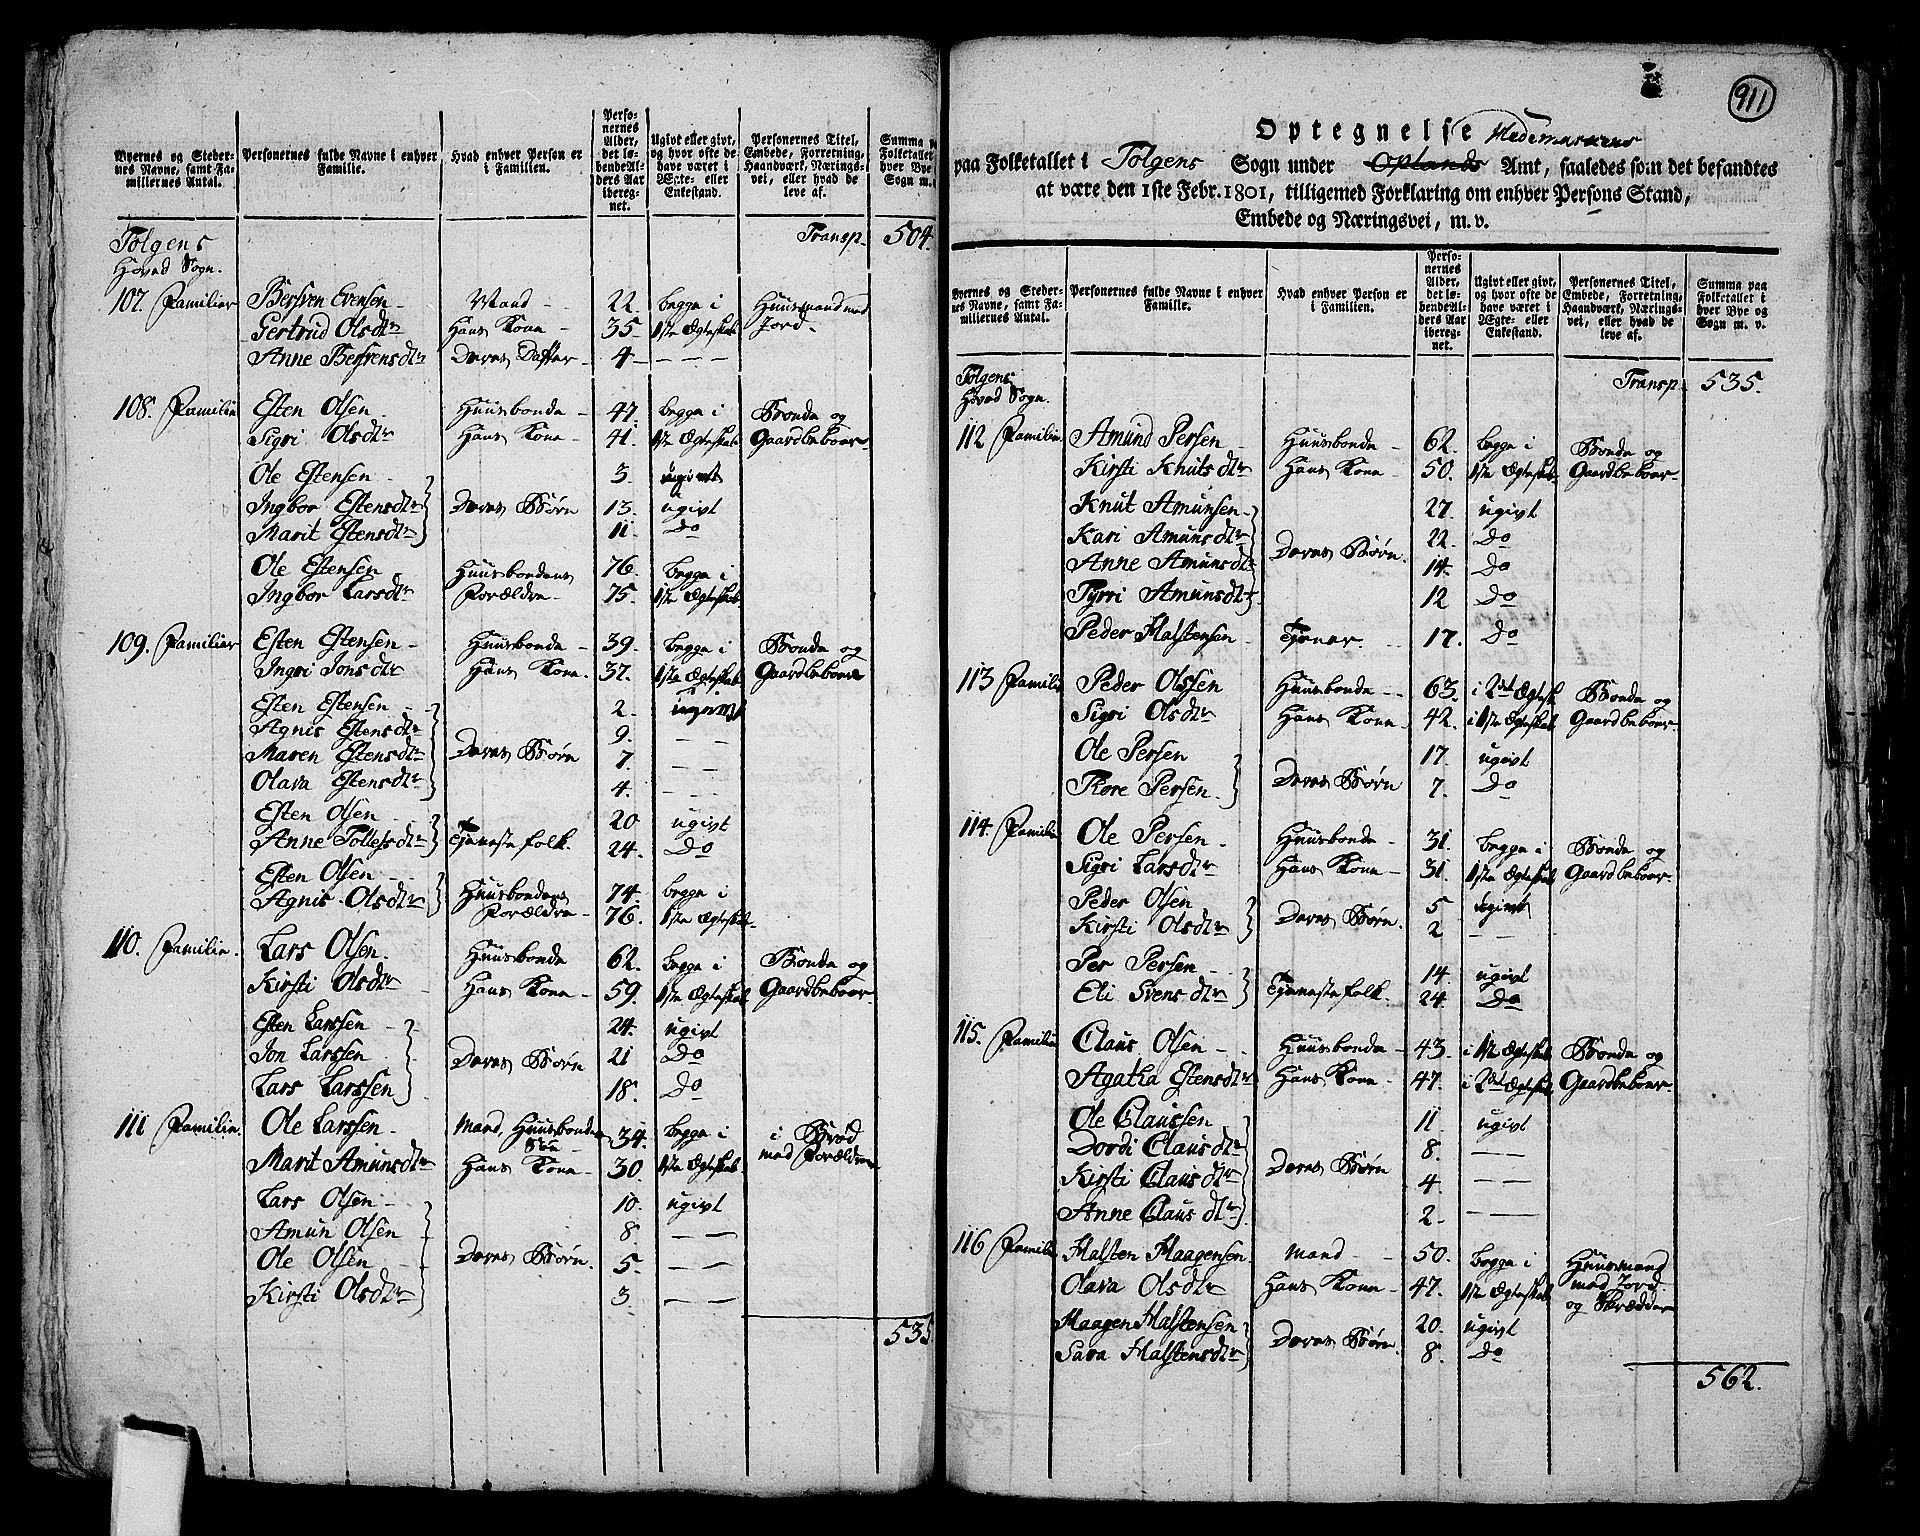 Byernes og Steder-
nes Navne, samt Fa-
miliernes Antal.
Personernes fulde Navne i enhver
Familie.
Hvad enhver Person er
i Familien.
Perso-
nernes
Alder,
det lø-
bende Al-
ders Aar
ibereg-
net.
Ugivt eller givt,
og hvor ofte de
have været i
Ægte- eller
Enkestand.
Personernes Titel,
Embede, Forretning,
Haandværk, Nærings-
vei, eller hvad de
leve af.
Summa p
Folketallet
hver Bye
Sogn m.
Tolgens Transp. 504.
Hoved Sogn.
107. Familier Bersven Evensen Mand 22. begge i Huusmand med
Gertrud Olsdtr Hans Kone 35. 1ste Ægteskab Jord.
Anne Bersvensdtr Deres Datter 4 — —
108. Familie Esten Olsen Huusbonde 47. begge i Bonde og
Sigri Olsdtr Hans Kone 41. 1ste Ægteskab Gaardbeboer
Ole Estensen 3. ugivt
Ingbor Estensdtr Deres Børn 13. ugivt
Marit Estensdtr 11. Do
Ole Estensen Huusbondens 76. begge i
Ingbor Larsdtr Forældre 75. 1ste Ægteskab
109. Familier Esten Estensen Huusbonde 39. begge i Bonde og
Ingri Jonsdtr Hans Kone 37. 1ste Ægteskab Gaardbeboer
Esten Estensen 2. ugivt
Agnis Estensdtr 9. — —
Maren Estensdtr Deres Børn 7. — —
Olava Estensdtr 4. — —
Esten Olsen 20 ugivt
Anne Tollefsdtr Tjeneste folk. 24. Do
Esten Olsen Huusbondens 74 begge i
Agnis Olsdtr Forældre 76. 1ste Ægteskab
110. Familie. Lars Olsen. Huusbonde 62. begge i Bonde og
Kirsti Olsdtr Hans Kone 59. 1ste Ægteskab Gaardbeboer
Esten Larssen 24. ugivt
Jon Larssen Deres Børn 21 Do
Lars Larssen 18. Do
111 Familie. Ole Larssen. Mand, Huusbondens 34. begge i i Brød
Søn
Marit Amunsdtr Hans Kone 30. 1ste Ægteskab. med Forældre
Lars Olsen 10. ugivt
Amun Olsen 8. — —
Ole Olsen Deres Børn. 5. — —
Kirsti Olsdtr 3. — —
535
911
Optegnelse Hedemarkens
paa Folketallet i Tolgens Sogn under Oplands Amt, saaledes som det befandtes
at være den 1ste Febr. 1801, tilligemed Forklaring om enhver Persons Stand,
Embede og Næringsvei, m. v.
Byernes og Steder-
nes Navne, samt Fa-
miliernes Antal.
Personernes fulde Navne i enhver
Familie.
Hvad enhver Person er
i Familien.
Perso-
nernes
Alder,
det lø-
bende Al-
ders Aar
ibereg-
net.
Ugivt eller givt,
og hvor ofte de
have været i
Ægte- eller
Enkestand.
Personernes Titel,
Embede, Forretning,
Haandværk, Nærings-
vei, eller hvad de
leve af.
Summa paa
Folketallet i
hver Bye og
Sogn m. v.
Tolgens Transp. 535.
Hoved Sogn.
112 Familie Amund Persen Huusbonde 62. begge i Bonde og
Kirsti Knutsdtr Hans Kone 50. 1ste Ægteskab Gaardbeboer
Knut Amunsen 27. ugivt
Kari Amunsdtr 22. Do
Anne Amunsdtr Deres Børn. 14. Do
Tyrri Amunsdtr 12 Do
Peder Halstensen Tjener 17. Do
113 Familie Peder Olssen Huusbonde 63. i 2det Ægtesk Bonde og
Sigri Olsdtr Hans Kone 42. i 1ste Ægteskab Gaardbeboer
Ole Persen 17. ugivt
Tore Persen Deres Børn 7. Do
114. Familie Ole Persen Huusbonde 31. begge i Bonde og
Sigri Larsdtr Hans Kone 31. 1ste Ægteskab Gaardbeboer
Peder Olsen 5 ugivt
Kirsti Olsdtr Deres Børn. 2 — —
Per Persen 14. ugivt
Eli Svensdtr Tjenestefolk. 24. Do
115. Familie Claus Olsen Huusbonde 43. i 1ste Ægteskab Bonde og
Agatha Estensdtr Hans Kone 47. i 2det Ægteskab Gaardbeboer
Ole Claussen 11. ugivt
Dordi Clausdtr 8. — —
Kirsti Clausdtr Deres Børn 4. — —
Anne Clausdtr 2 — —
116 Familie Halsten Haagensen Mand 50. begge i Huusmand
Olava Olsdtr Hans Kone 47. 1ste Ægteskab med Jord
og Skrædder
Haagen Halstensen 20. ugivt
Sara Halstensdtr Deres Børn. 8. Do
562.